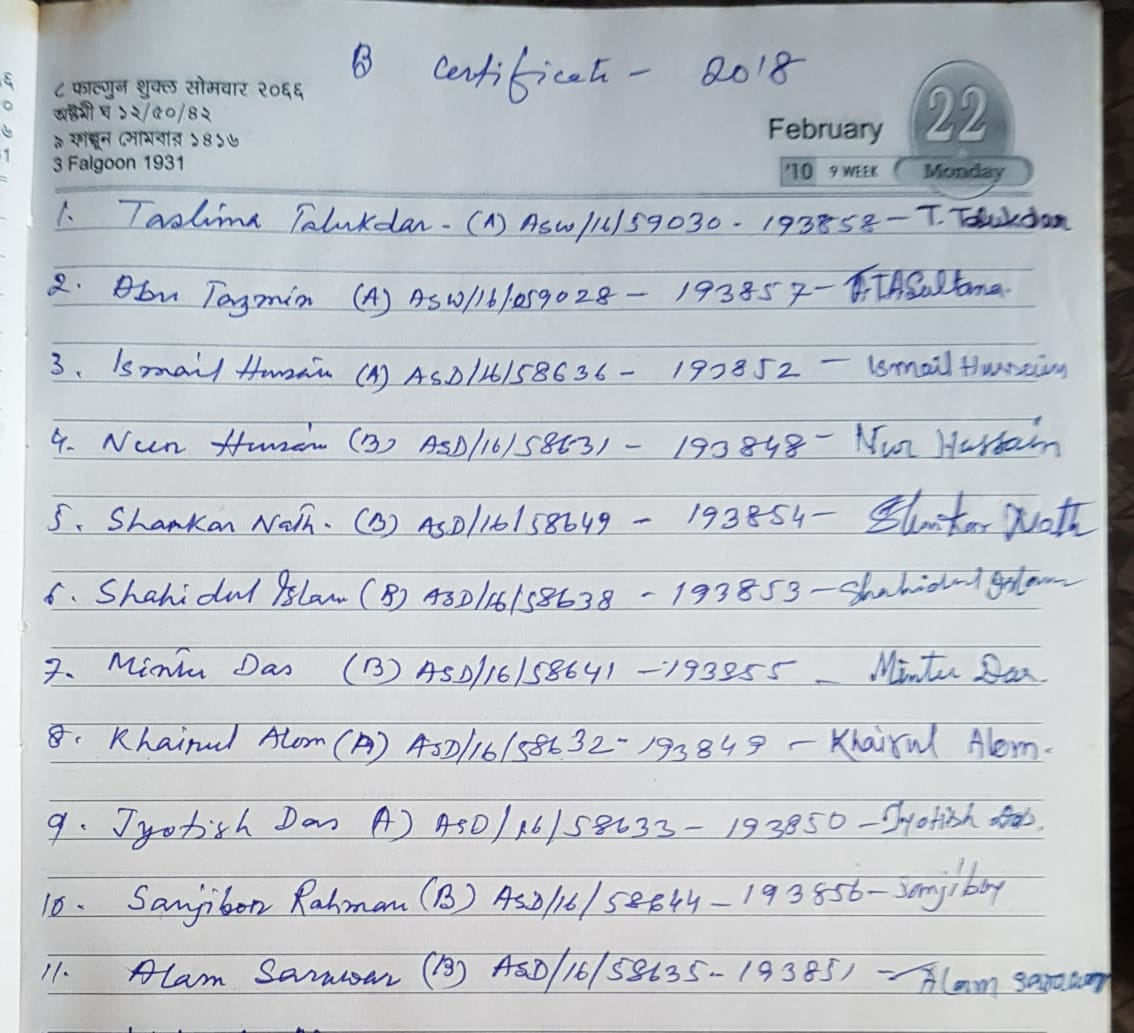 B Certificate - 2018
८ फाल्गुन शुक्ल सोमवार २०६६
अष्टमी घ १२/५०/४२
৯ ফাল্গুন সোমবার ১৪১৬
3 Falgoon 1931
February 22
'10 9 WEEK Monday
1. Taslima Talukdar - (A) ASW/16/59030 - 193858 - T. Talukdar
2. Abu Tazmin (A) ASW/16/059028 - 193857 - ATASultana.
3. Ismail Husain (A) ASD/16/58636 - 193852 - Ismail Hussain
4. Nur Husain (B) ASD/16/58631 - 193848 - Nur Hussain
5. Shankar Nath. (B) ASD/16/58649 - 193854 - Shankar Nath
6. Shahidul Islam (B) ASD/16/58638 - 193853 - Shahidul Islam
7. Mintu Das (B) ASD/16/58641 - 193855 - Mintu Das.
8. Khairul Alom (A) ASD/16/58632 - 193849 - Khairul Alom.
9. Jyotish Das A) ASD/16/58633 - 193850 - Jyotish Das.
10. Sanjibor Rahman (B) ASD/16/58644 - 193856 - Sanjibor
11. Alam Sarwar (B) ASD/16/58635 - 193851 - Alam Sarawar